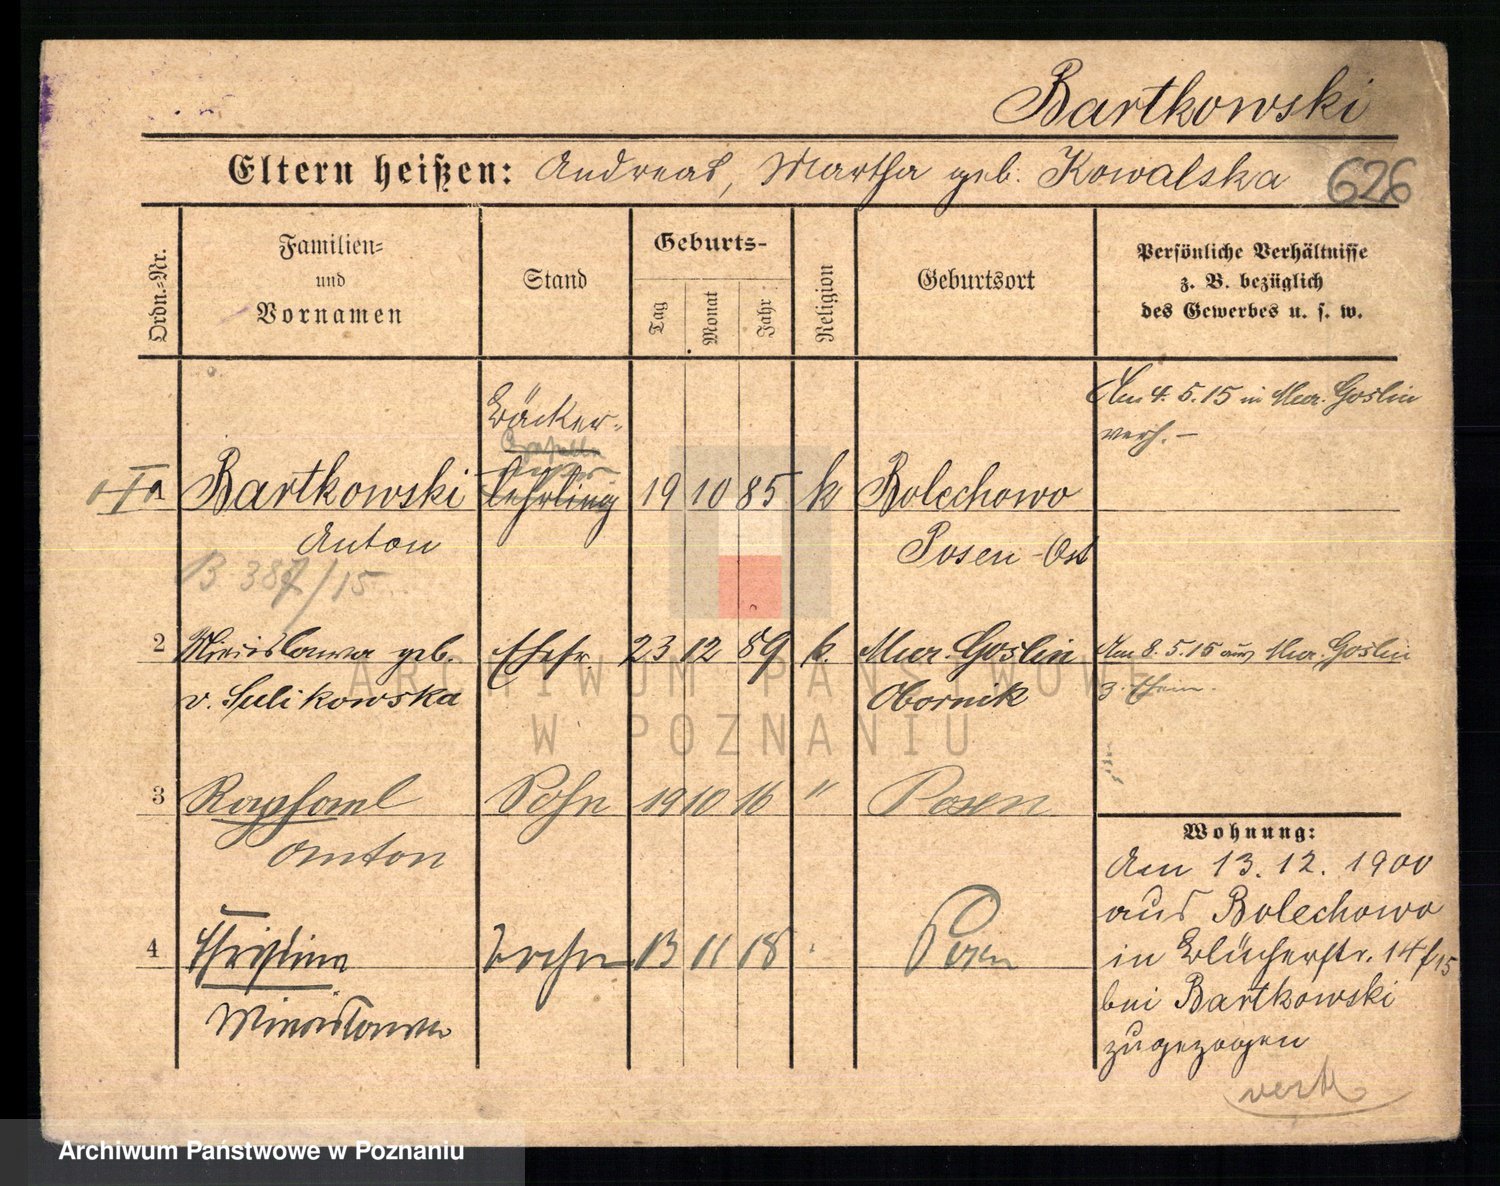 Bartkowski
Eltern heißen: Andreas, Martha geb. Kowalska 626
Ordn.-Nr.
Familien-
und
Vornamen
Stand
Geburts-
Tag
Monat
Jahr
Religion
Geburtsort
Persönliche Verhältnisse
z. B. bezüglich
des Gewerbes u. s. w.
Am 4. 5. 15 in Mur. Goslin
verh. -
Bäcker-
Bartkowski lehrling 19 10 85 k Bolechowo
Anton Posen-Ost
B 387/15
2 Miecislawa geb. Ehefr. 23 12 89 k. Mur. Goslin Am 8. 5. 15 aus Mur. Goslin
v. Sulikowska Obornik z. Ehem.
3 Raphael Sohn 19 10 16 " Posen
Anton
4 Christina Tochter 13 11 18 Posen
Miecislawa
Wohnung:
Am 13. 12. 1900
aus Bolechowo
in Blücherstr. 14 f 15
bei Bartkowski
zugezogen
verh
ARCHIWUM PAŃSTWOWE
W POZNANIU
Archiwum Państwowe w Poznaniu